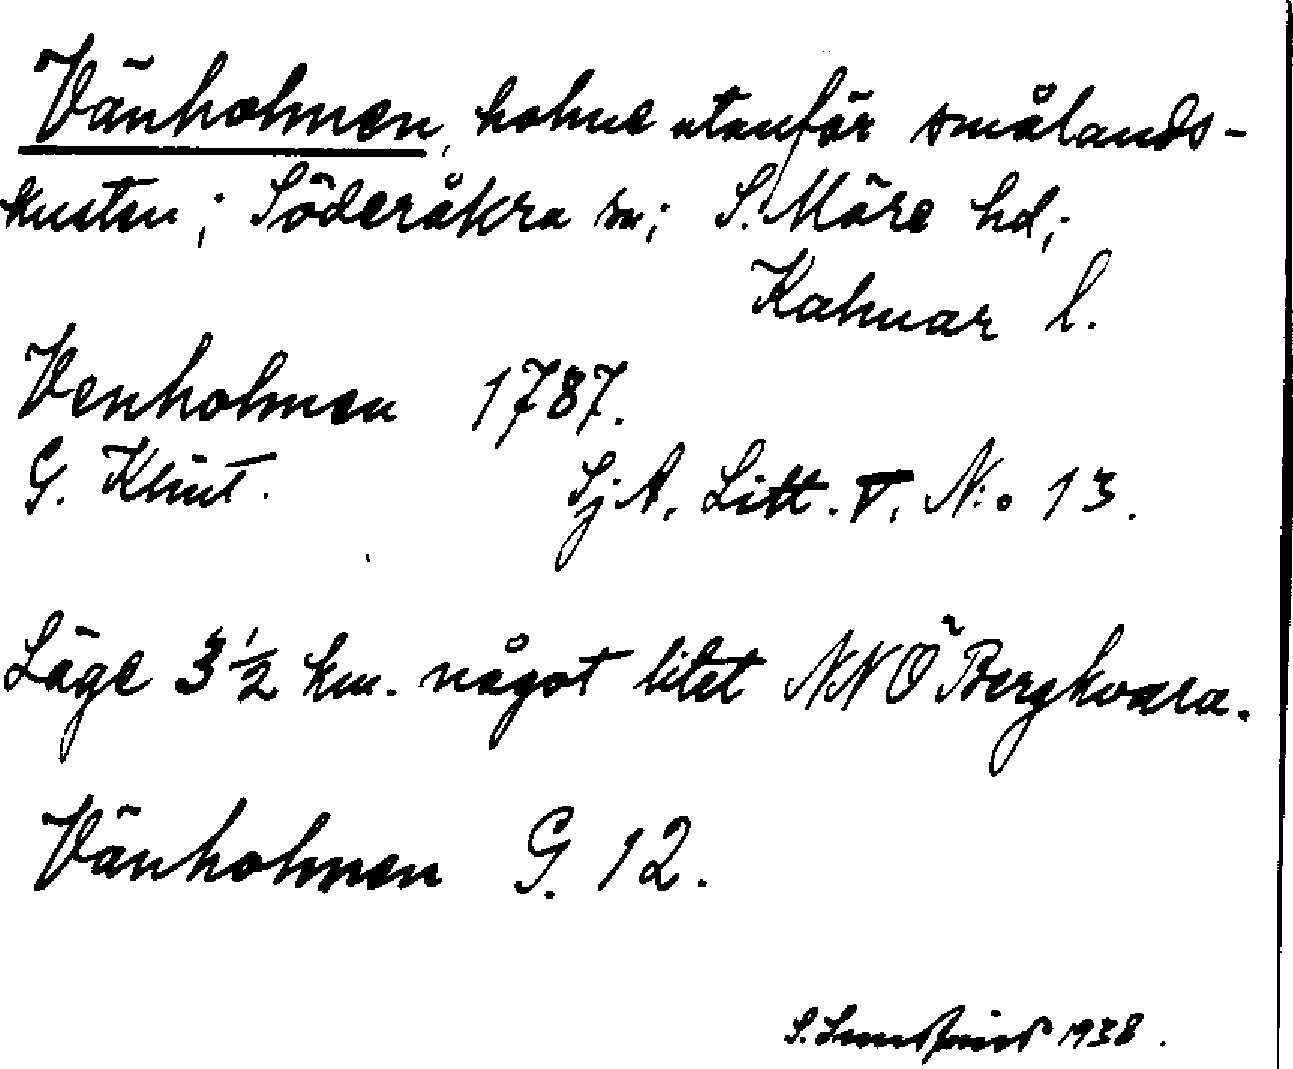 Vänholmen, holme utanför smålands-
kusten; Söderåkra sn; S. Möre hd;
Kalmar l.
Venholmen 1787.
G. Klint. Sj A. Litt. V. N:o 13.
Läge 3 1/2 km. något litet NNÖ Bergkvara.
Vänholmen G. 12.
S. 1938.